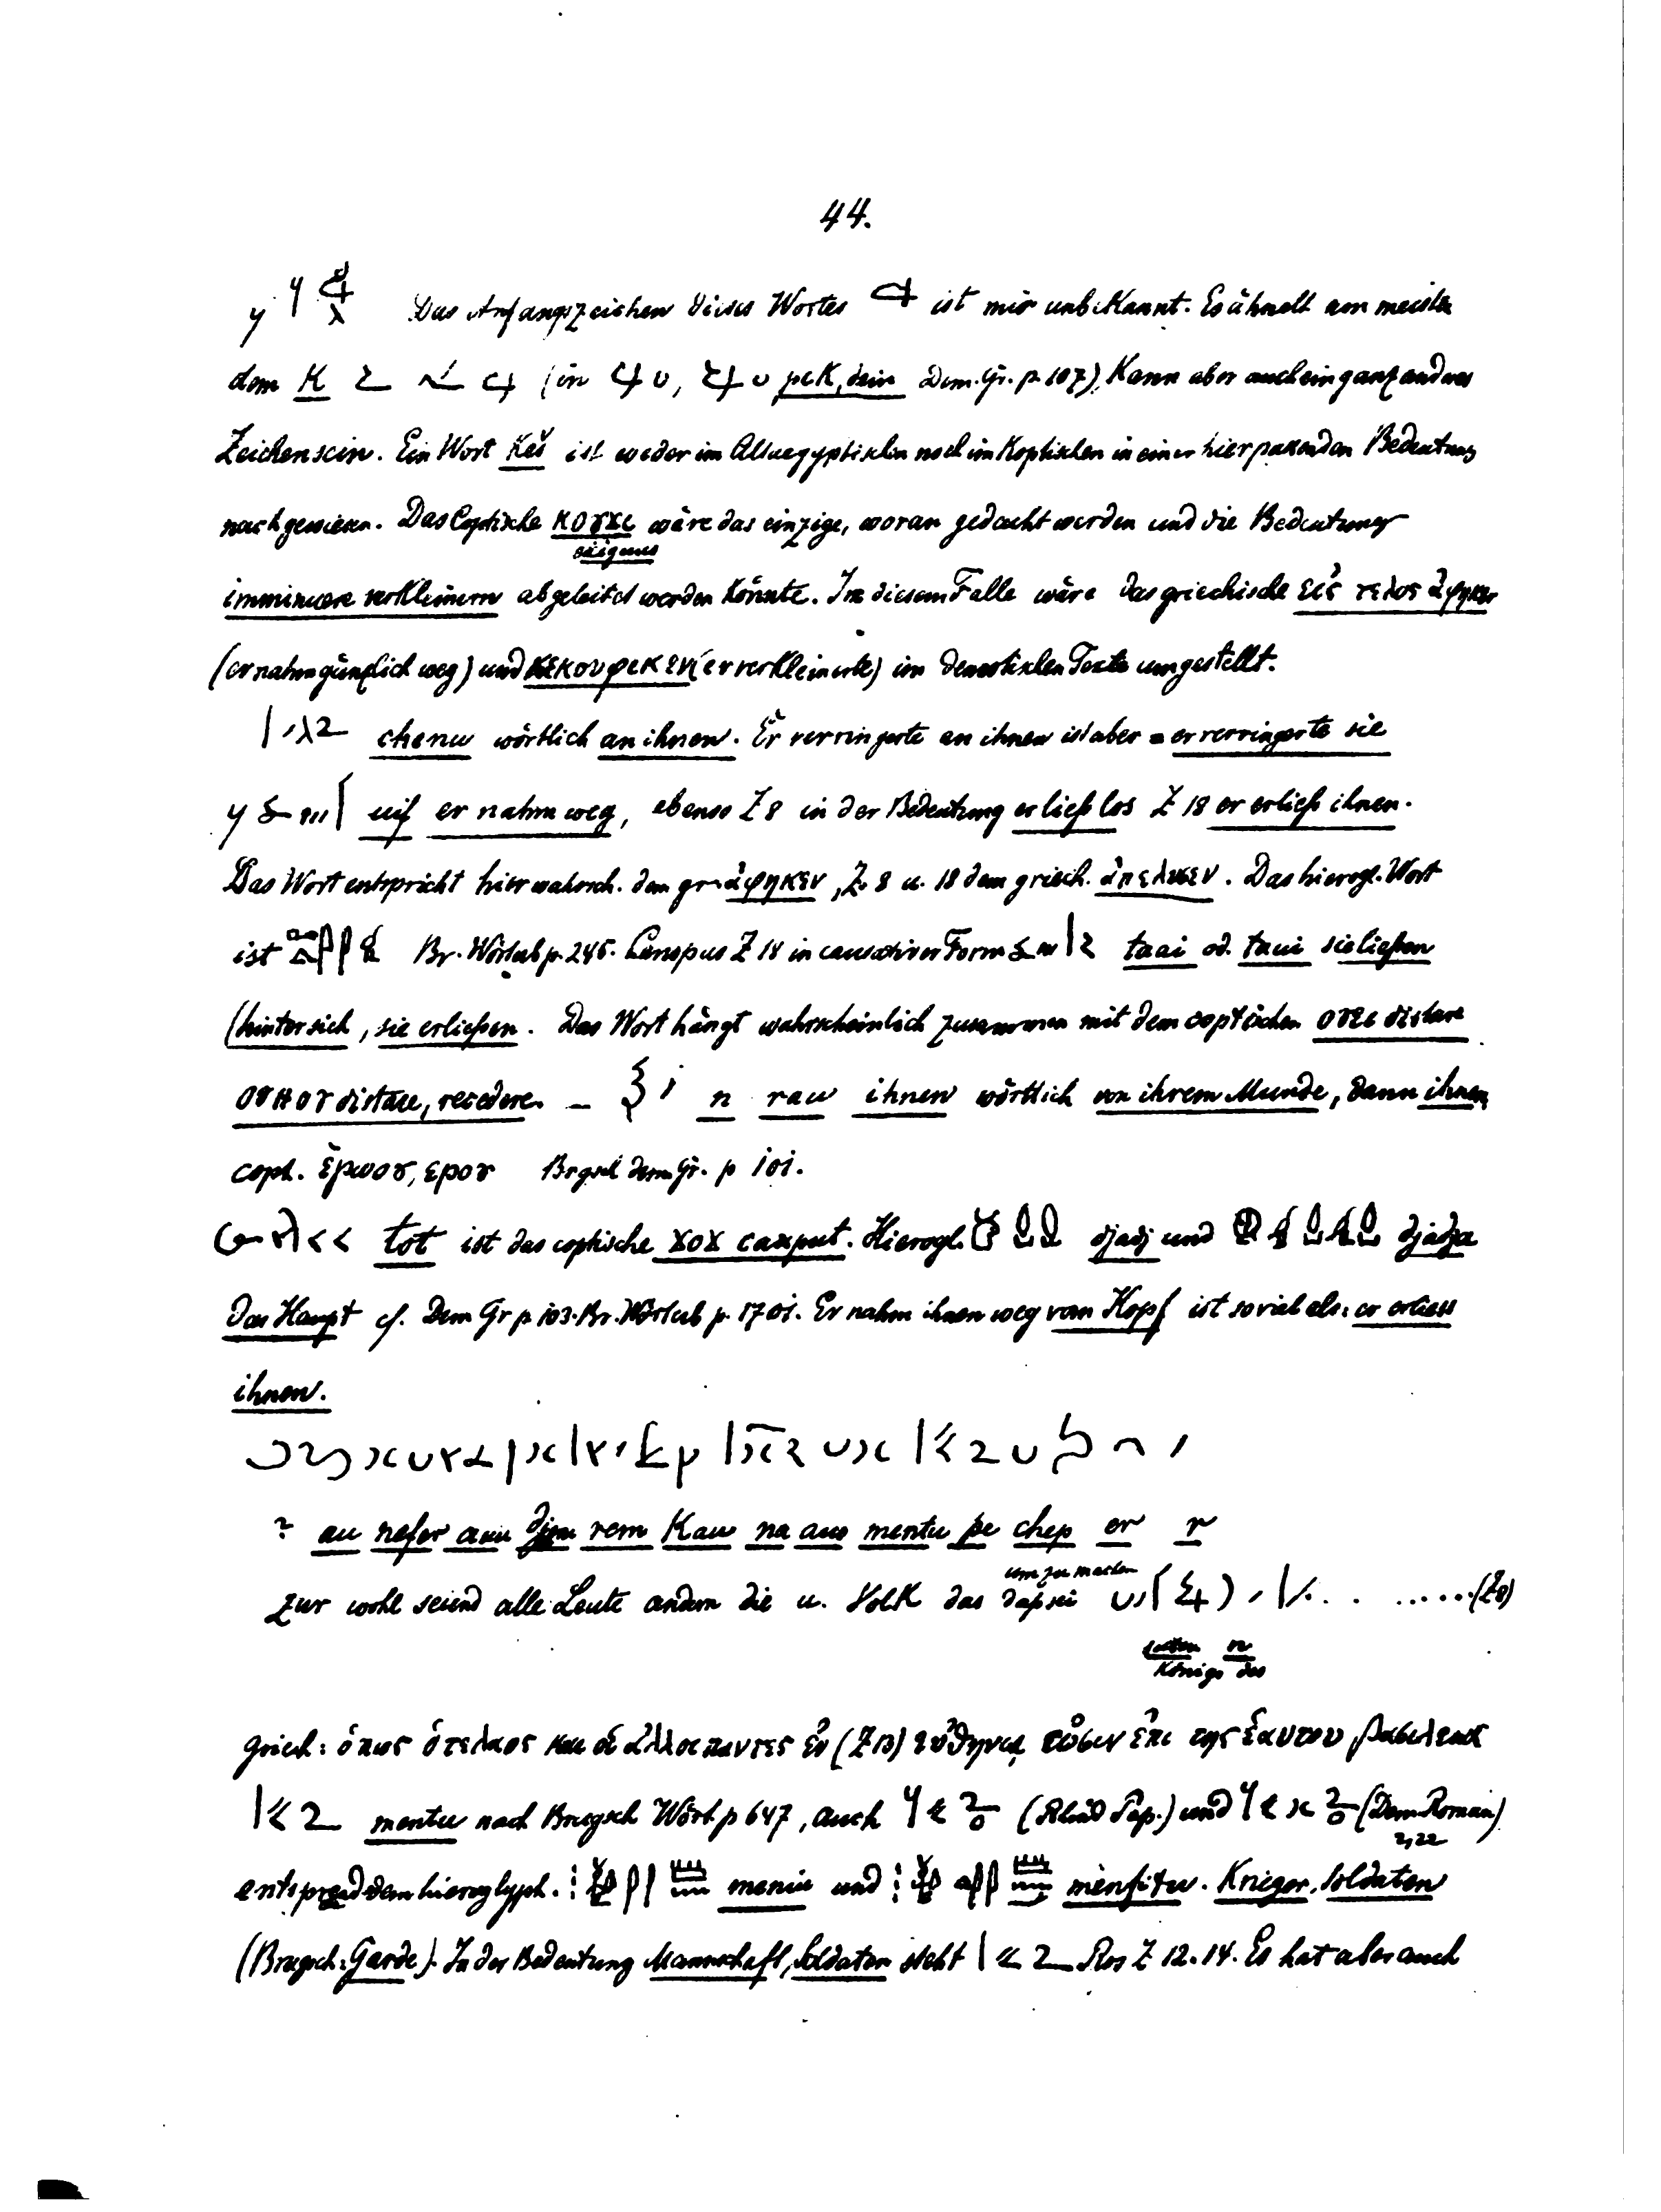 44.
Das Anfangszeichen dieses Wortes ist mir unbekannt. Es ähnelt am meisten
dem K (in pek, dein Dem. Gr. p 107), kann aber auch ein ganz andres
Zeichen sein. Ein Wort Keš ist weder im Altaegyptischen noch im Koptischen in einer hier passenden Bedeutung
nachgewiesen. Das Coptische ⲕⲟⲩϫⲓ wäre das einzige, woran gedacht werden und die Bedeutung
exiguus
imminuere verkleinern abgeleitet werden könnte. In diesem Falle wäre das griechische εἰς τελος ἀφηκεν
(er nahm gänzlich weg) und κεκουφικεν (er verkleinerte) im demotischen Texte umgestellt.
chenu wörtlich an ihnen. Er verringerte an ihnen ist aber = er verringerte sie
uif er nahm weg, ebenso Z 8 in der Bedeutung er ließ los Z 18 er erließ ihnen.
Das Wort entspricht hier wahrsch. dem gr. ἀφηκεν, Z. 8 u. 18 dem griech. ἀπελυσεν. Das hierogl. Wort
ist Br. Wörterb p. 245. Canopus Z 14 in causativer Form taai od. taui sie ließen
(hinter sich, sie erließen. Das Wort hängt wahrscheinlich zusammen mit dem coptischen ⲟⲩⲉⲓ distare
distare, recedere. – n rau ihnen wörtlich von ihrem Munde, dann ihnen
copt. ⲉⲣⲱⲟⲩ, ⲉⲣⲟⲩ Brgsch dem. Gr. p 101.
tot ist das coptische ϫⲟϫ caput. Hierogl. djadj und djadja
das Haupt cf. Dem Gr p 103. Br. Wörterb p. 1701. Er nahm ihnen weg vom Kopf ist soviel als: er erliess
ihnen.
? au nefer auu djem rem Kau na aus mentu pe chep er r
um zu machen
zur wohl seiend alle Leute andern die u. Volk das daß sei (Z8)
n
Königs des
Griech: ὁπως ὁ τε λαος και οἱ ἀλλοι παντες ἐν (Z 13) εὐθηνιᾳ ὠσιν ἐπι της ἑαυτου βασιλειας
mentu nach Brugsch Wört. p 647, auch (Rhind Pap.) und (Dem. Roman)
2,22
entsprechd dem hieroglyph. meniu und menfitu. Krieger, Soldaten
(Brugsch: Garde). In der Bedeutung Mannschaft, Soldaten steht Ros Z 12. 14. Es hat aber auch